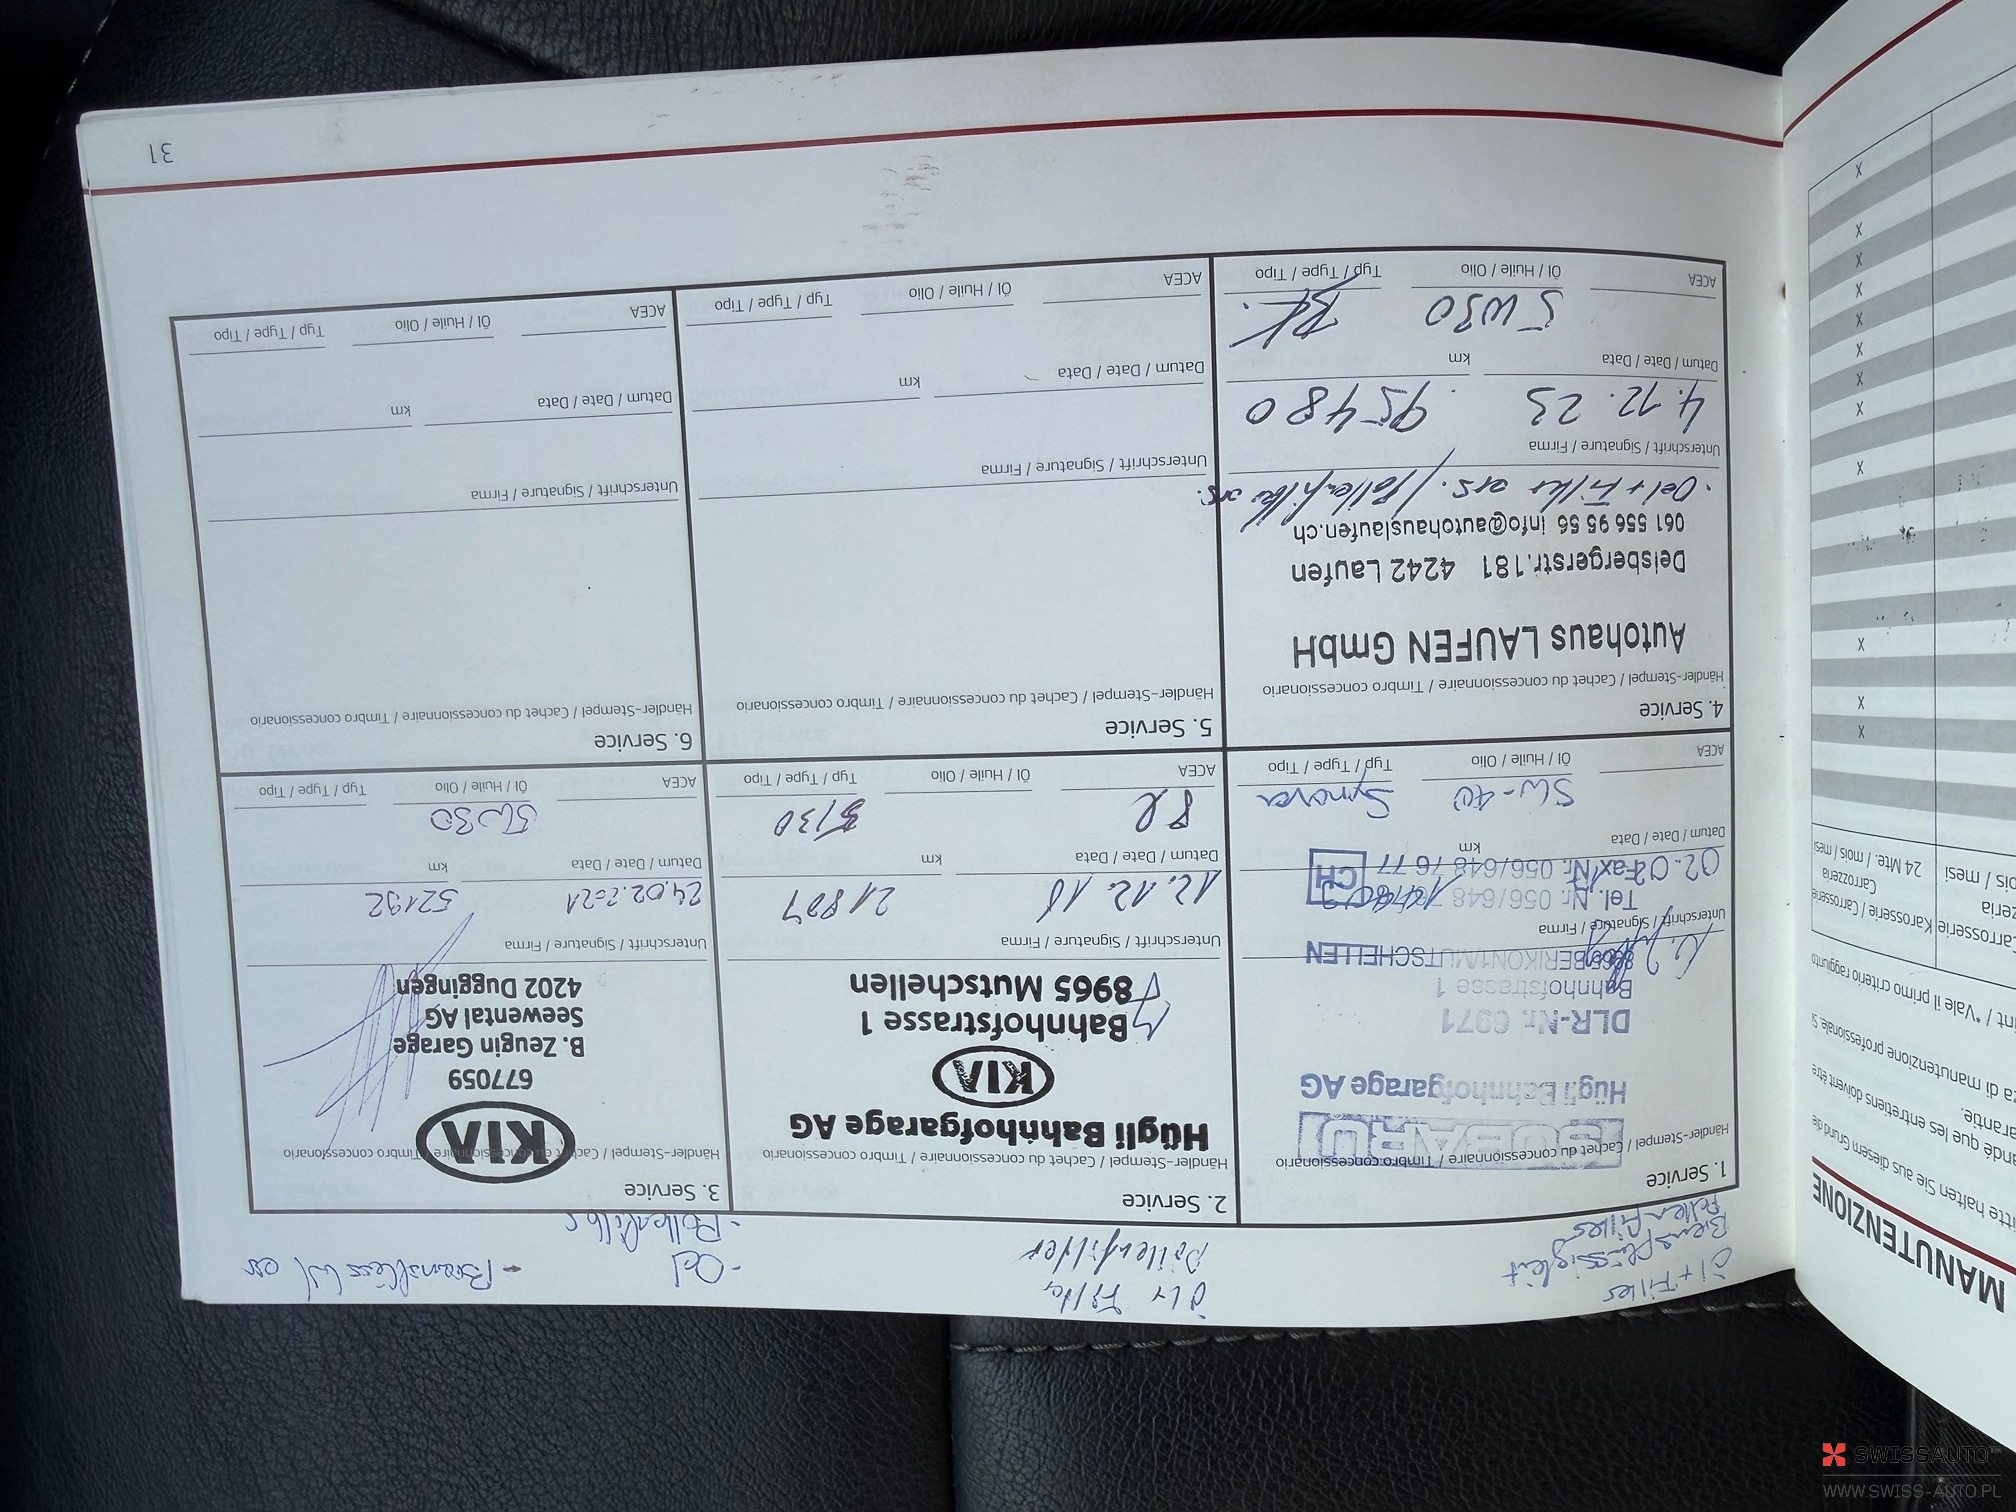 Öl + Filter
Bremsflüssigkeit
Pollenfilter
1. Service
Händler-Stempel / Cachet du concessionnaire / Timbro concessionario
SUBARU
Hügli Bahnhofgarage AG
DLR-Nr. 6971
Bahnhofstrasse 1
8965 BERIKON1/MUTSCHELLEN
Unterschrift / Signature / Firma
Tel. Nr. 056/648
Fax Nr. 056/648 76 77
CH
Datum / Date / Data
km
5W-40
ACEA
Öl / Huile / Olio
Typ / Type / Tipo
Öl + Filter
Pollenfilter
2. Service
Händler-Stempel / Cachet du concessionnaire / Timbro concessionario
Hügli Bahnhofgarage AG
KIA
Bahnhofstrasse 1
8965 Mutschellen
Unterschrift / Signature / Firma
12.12.18 21807
Datum / Date / Data
km
5/30
ACEA
Öl / Huile / Olio
Typ / Type / Tipo
- Oel
- Pollenfilter
3. Service
Händler-Stempel / Cachet du concessionnaire / Timbro concessionario
KIA
677059
B. Zeugin Garage
Seewental AG
4202 Duggingen
Unterschrift / Signature / Firma
24.02.2021 52192
Datum / Date / Data
km
5W30
ACEA
Öl / Huile / Olio
Typ / Type / Tipo
4. Service
Händler-Stempel / Cachet du concessionnaire / Timbro concessionario
Autohaus LAUFEN GmbH
Delsbergerstr.181 4242 Laufen
061 556 95 56 info@autohauslaufen.ch
· Oel + Filter ers. / Pollenfilter ers.
Unterschrift / Signature / Firma
4.12.23 95480
Datum / Date / Data
km
5W30
ACEA
Öl / Huile / Olio
Typ / Type / Tipo
5. Service
Händler-Stempel / Cachet du concessionnaire / Timbro concessionario
Unterschrift / Signature / Firma
Datum / Date / Data
km
ACEA
Öl / Huile / Olio
Typ / Type / Tipo
6. Service
Händler-Stempel / Cachet du concessionnaire / Timbro concessionario
Unterschrift / Signature / Firma
Datum / Date / Data
km
ACEA
Öl / Huile / Olio
Typ / Type / Tipo
31
MANUTENZIONE
Carrosserie
Karosserie / Carrosserie
Carrozzeria
24 Mte. / mois / mesi
X
X
X
X
X
X
X
X
X
X
X
X
SWISSAUTO™
WWW.SWISS-AUTO.PL